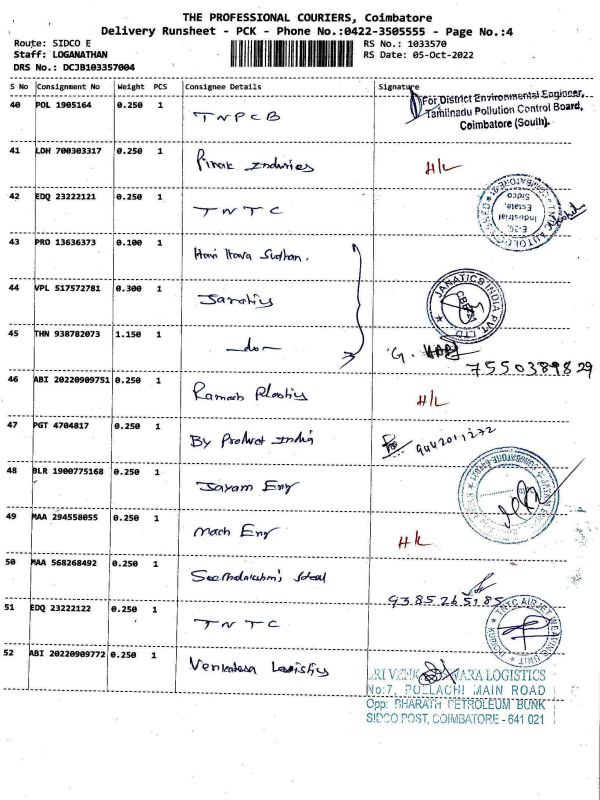 THE PROFESSIONAL COURIERS, Coimbatore
Delivery Runsheet - PCK - Phone No.:0422-3505555 - Page No.:4
Route: SIDCO E RS No.: 1033570
Staff: LOGANATHAN RS Date: 05-Oct-2022
DRS No.: DCJB103357004
S No Consignment No Weight PCS Consignee Details Signature
40 POL 1905164 0.250 1 TNPCB
For District Environmental Engineer,
Tamilnadu Pollution Control Board,
Coimbatore (South).
41 LDH 700303317 0.250 1 H/L
42 EDQ 23222121 0.250 1 TNTC
E-30, Industrial Estate, Sidco
43 PRO 13636373 0.100 1 Hari Hara Sudhan.
44 VPL 517572781 0.300 1
JANATICS INDIA PVT. LTD
45 THN 938782073 1.150 1 -do- G.
7550389829
46 ABI 20220909751 0.250 1 Plastics H/L
47 PGT 4704817 0.250 1 By Product India
48 BLR 1900775168 0.250 1 Jayam Eng
49 MAA 294558055 0.250 1 Mach Eng H/L
50 MAA 568268492 0.250 1
9385265185
51 EDQ 23222122 0.250 1 TNTC
TNTC AIRJET WEAVING UNIT
52 ABI 20220909772 0.250 1 Venkatesa Logistics
LOGISTICS
No:7, POLLACHI MAIN ROAD
Opp: BHARATH PETROLEUM BUNK
SIDCO POST, COIMBATORE - 641 021